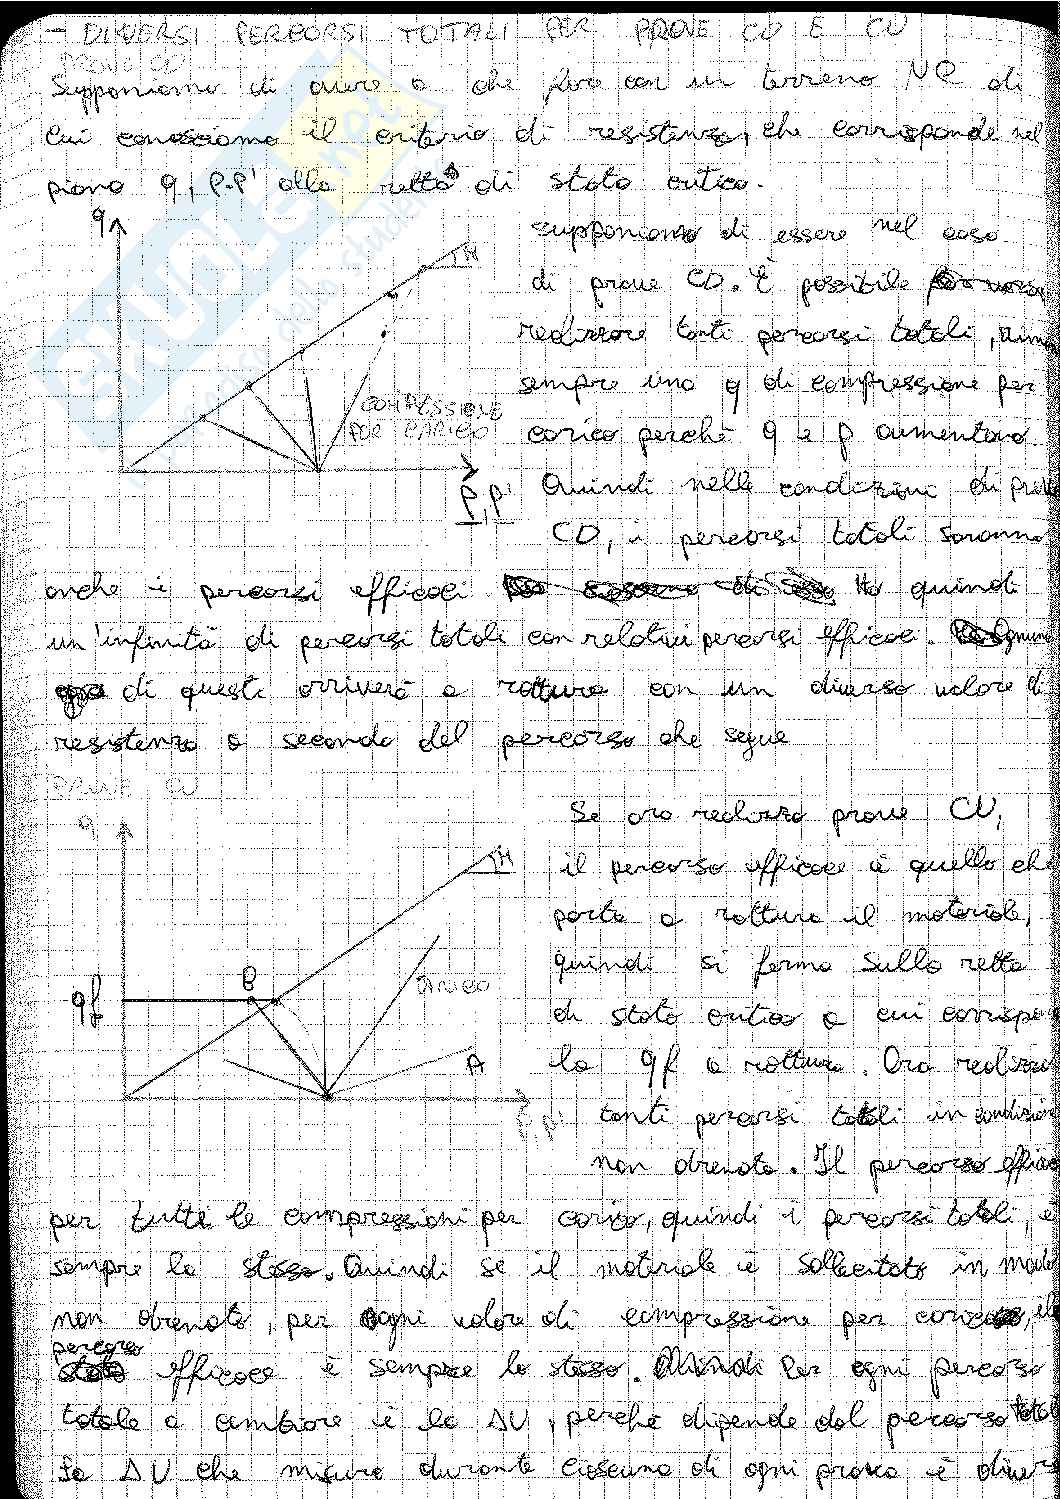 - DIVERSI PERCORSI TOTALI PER PROVE CD E CU
PROVE CD
Supponiamo di avere a che fare con un terreno NC di
cui conosciamo il criterio di resistenza, che corrisponde nel
piano q, p-p' alla retta di stato critico.
q
M
COMPRESSIONE
PER CARICO
p, p'
supponiamo di essere nel caso
di prove CD. È possibile
realizzare tanti percorsi totali,
sempre una q di compressione per
carico perché q e p aumentano
Quindi nelle condizioni di prova
CD, i percorsi totali saranno
anche i percorsi efficaci Ho quindi
un'infinità di percorsi totali con relativi percorsi efficaci. Ognuno
di questi arriverà a rottura con un diverso valore di
resistenza a seconda del percorso che segue
PROVE CU
q
M
B
qf
CARICO
A
p, p'
Se ora realizzo prove CU,
il percorso efficace è quello che
porta a rottura il materiale,
quindi si ferma sulla retta
di stato critico a cui corrispo
la qf a rottura. Ora realizzo
tanti percorsi totali in condizioni
non drenate. Il percorso efficace
per tutte le compressioni per carico, quindi i percorsi totali, è
sempre lo stesso. Quindi se il materiale è sollecitato in modo
non drenato, per ogni valore di compressione per carico, il
percorso
efficace è sempre lo stesso. Per ogni percorso
totale a cambiare è la ΔU, perché dipende dal percorso total
La ΔU che misuro durante ciascuna di ogni prova è divers